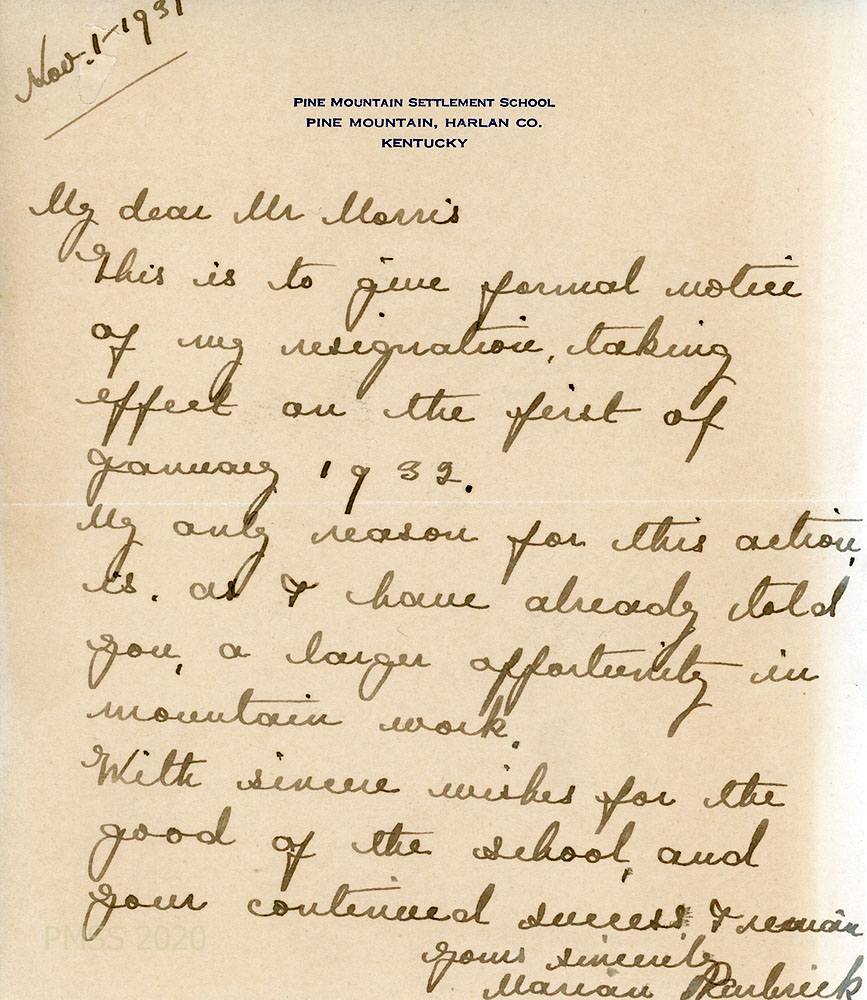 Nov. 1 - 1931
PINE MOUNTAIN SETTLEMENT SCHOOL
PINE MOUNTAIN, HARLAN CO.
KENTUCKY
My dear Mr Morris
This is to give formal notice
of my resignation, taking
effect on the first of
January 1932.
My only reason for this action,
is. as I have already told
you, a larger opportunity in
mountain work.
With sincere wishes for the
good of the school, and
your continued success I remain
yours sincerely
Marian
PMSS 2020